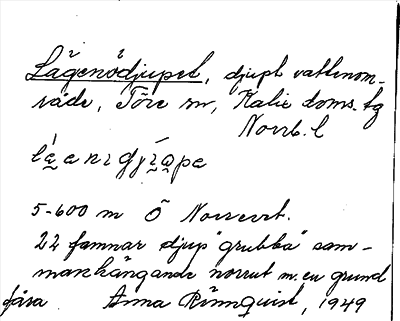 Lågenödjupet, djupt vattenom-
råde, Töre sn, Kalix doms. tg
Norrb. l
5-600 m Ö Norrerct.
22 famnar djup "grubba" sam-
manhängande norrut m. en grund
fåra Anna Rönnquist, 1949